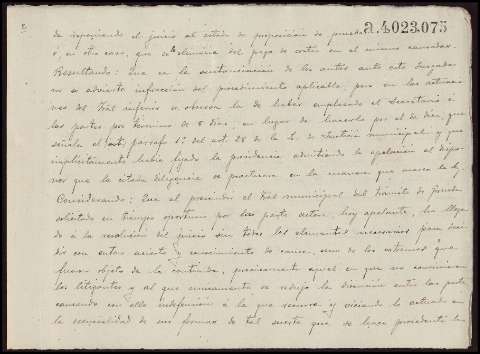 a.4023.075
da reponiendo el juicio al estado de proposición de prueba
ó, en otro caso, que se elimine del pago de costas en el mismo causadas.
Resultando: Que en la sustanciación de los autos ante este Juzgado
no se advierte infracción del procedimiento aplicable, pero en las actuacio-
nes del Tral inferior se observa la de haber emplazado el Secretario á
las partes por término de 8 días, en lugar de hacerlo por el de diez, que
señala el párrafo 1º del art. 28 de la L. de Justicia municipal y que
implícitamente había fijado la presidencia admitiendo la apelación al dispo-
ner que la citada diligencia se practicara en la manera que marca la ley.
Considerando: Que al prescindir el Tral municipal del trámite de prueba
solicitado en tiempo oportuno por la parte actora, hoy apelante, ha llega-
do á la resolución del juicio sin todos los elementos necesarios para deci-
dir con entero acierto y conocimiento de causa, uno de los extremos que
fueron objeto de la contienda, precisamente aquel en que no convinieron
los litigantes y al que únicamente se redujo la discusión entre las partes
causando con ello indefensión á la que recurre y viciando lo actuado en
la esencialidad de sus formas de tal suerte que se hace